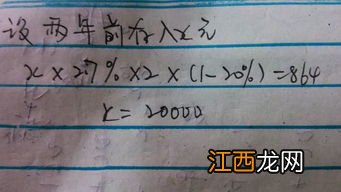 设两年前存入x元
x×2.7%×2×(1-20%)=864
x=20000
江西龙网